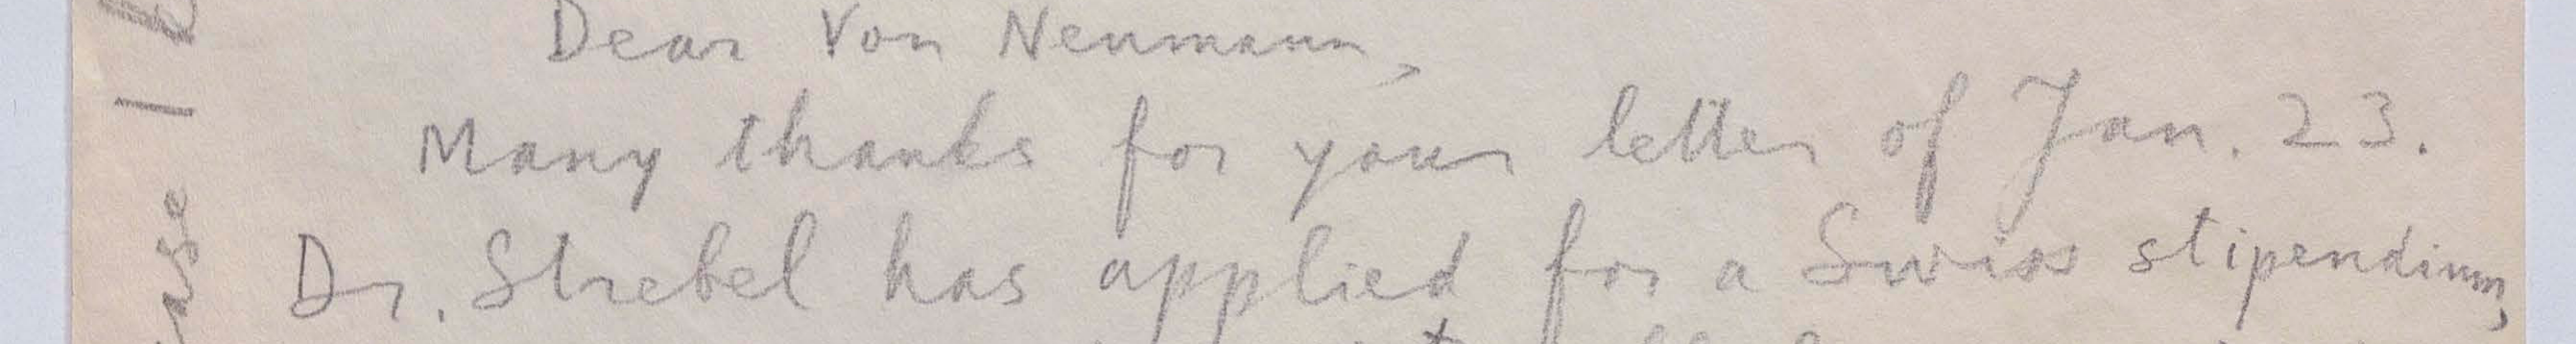 Dear Von Neumann,
Many thanks for your letter of Jan. 23.
Dr. Strebel has applied for a Swiss stipendium,